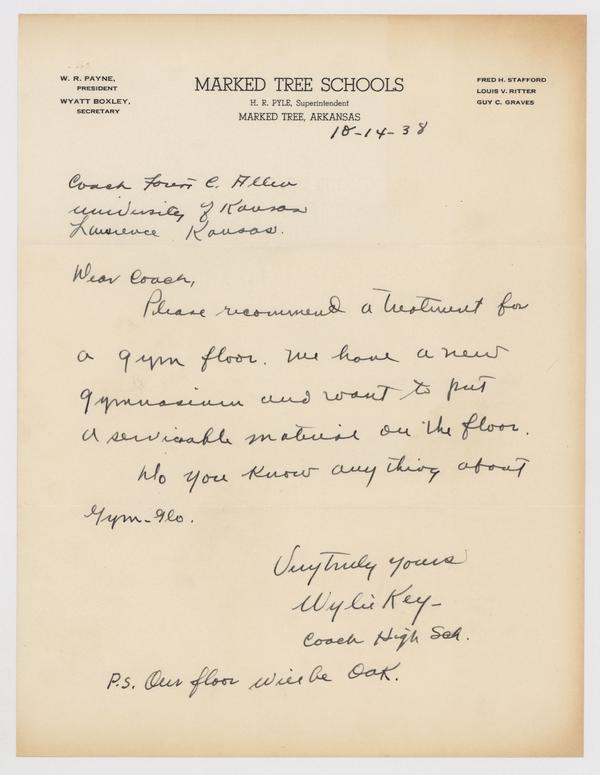 W. R. PAYNE,
PRESIDENT
WYATT BOXLEY,
SECRETARY
MARKED TREE SCHOOLS
H. R. PYLE, Superintendent
MARKED TREE, ARKANSAS
FRED H. STAFFORD
LOUIS V. RITTER
GUY C. GRAVES
10-14-38
Coach Forest C. Allen
University of Kansas
Lawrence Kansas.
Dear Coach,
Please recommend a treatment for
a gym floor. We have a new
gymnasium and want to put
a servicable material on the floor.
Do you know anything about
Gym-Glo.
Very truly yours
Wylie Key-
Coach High Sch.
P.S. Our floor will be Oak.